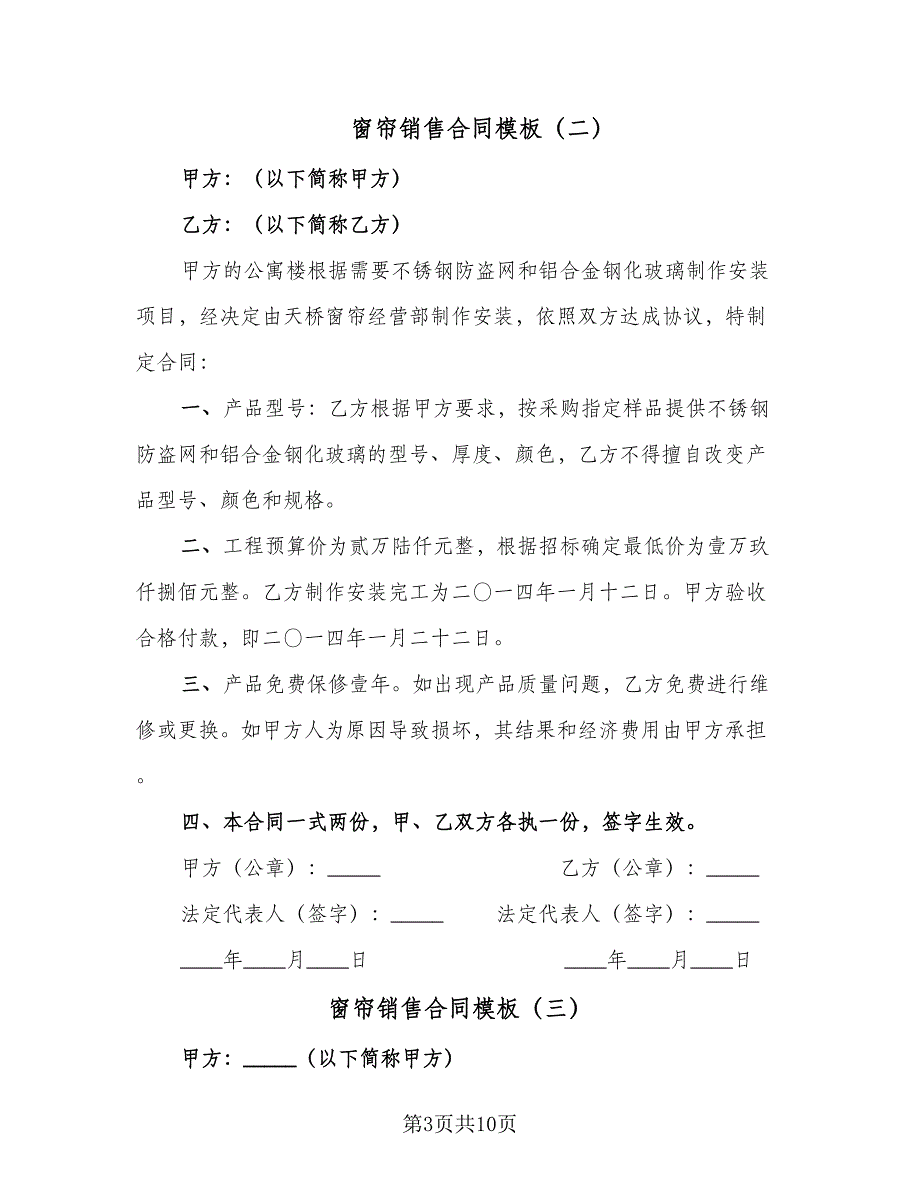 窗帘销售合同模板（二）
甲方：（以下简称甲方）
乙方：（以下简称乙方）
甲方的公寓楼根据需要不锈钢防盗网和铝合金钢化玻璃制作安装
项目，经决定由天桥窗帘经营部制作安装，依照双方达成协议，特制
定合同：
一、产品型号：乙方根据甲方要求，按采购指定样品提供不锈钢
防盗网和铝合金钢化玻璃的型号、厚度、颜色，乙方不得擅自改变产
品型号、颜色和规格。
二、工程预算价为贰万陆仟元整，根据招标确定最低价为壹万玖
仟捌佰元整。乙方制作安装完工为二〇一四年一月十二日。甲方验收
合格付款，即二〇一四年一月二十二日。
三、产品免费保修壹年。如出现产品质量问题，乙方免费进行维
修或更换。如甲方人为原因导致损坏，其结果和经济费用由甲方承担
。
四、本合同一式两份，甲、乙双方各执一份，签字生效。
甲方（公章）：_____ 乙方（公章）：_____
法定代表人（签字）：_____ 法定代表人（签字）：_____
____年____月____日 ____年____月____日
窗帘销售合同模板（三）
甲方：_____（以下简称甲方）
第3页共10页